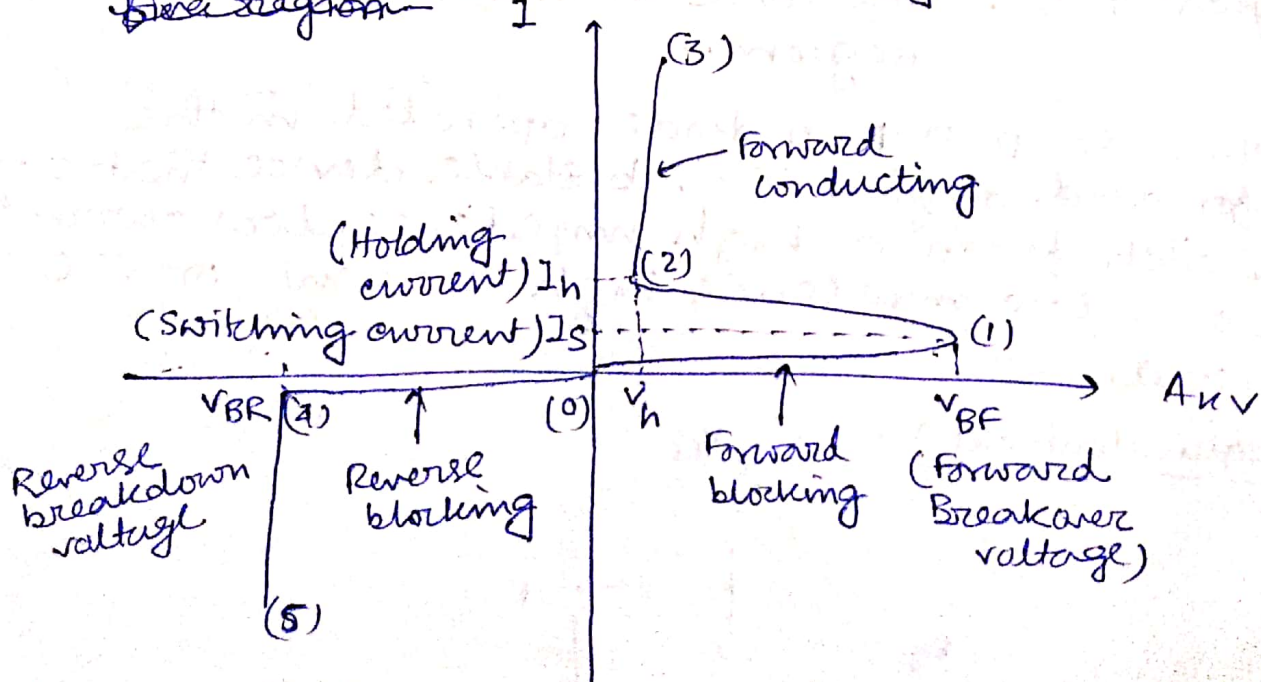 I
(3)
Forward
conducting
(Holding
current) Ih
(2)
(Switching current) Is
(1)
VBR (4)
(0)
Vh
VBF
AKV
Reverse
breakdown
voltage
Reverse
blocking
Forward
blocking
(Forward
Breakover
voltage)
(5)